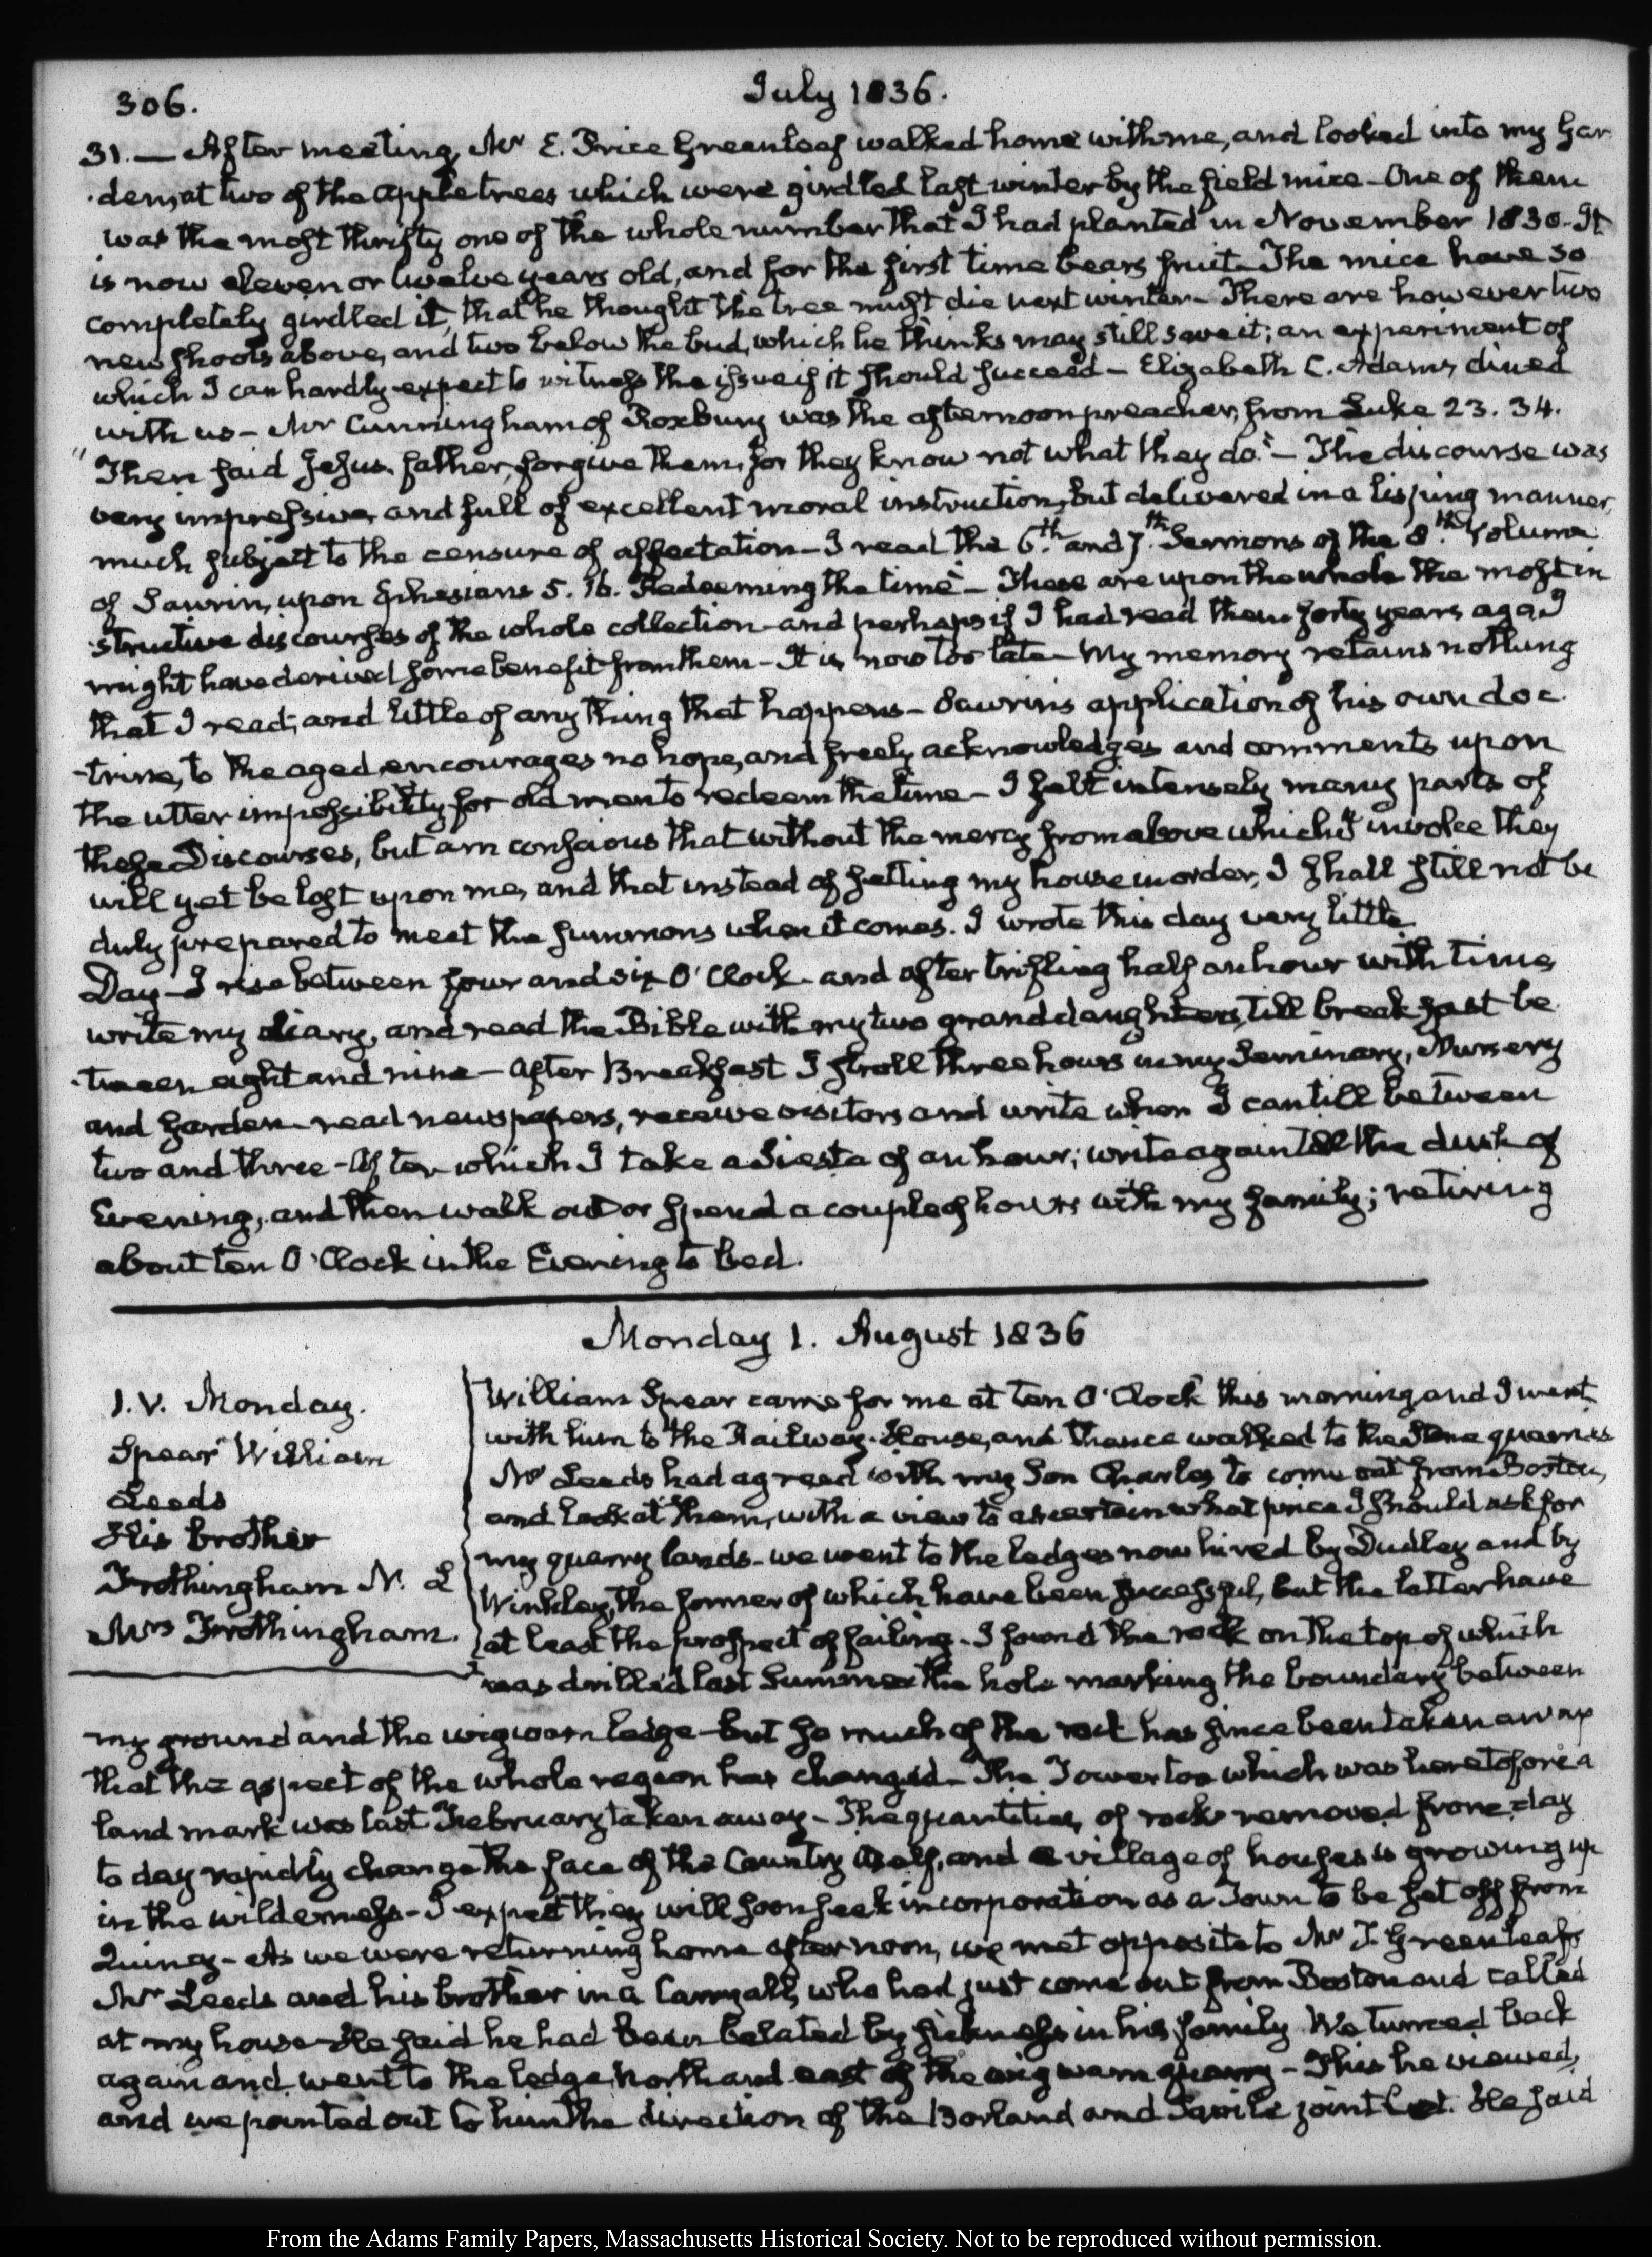 306.
July 1836.
31. — After meeting, Mr E. Price Greenleaf walked home with me, and looked into my Gar
-den, at two of the apple trees which were girdled last winter by the field mice — One of them
was the most thrifty one of the whole number that I had planted in November 1830. It
is now eleven or twelve years old, and for the first time bears fruit — The mice have so
completely girdled it, that he thought the tree must die next winter — There are however two
new shoots above, and two below the bud, which he thinks may still save it; an experiment of
which I can hardly expect to witness the issue if it should succeed — Elizabeth C. Adams, dined
with us — Mr Cunningham of Roxbury was the afternoon preacher, from Luke 23. 34.
"Then said Jesus. Father, forgive them, for they know not what they do." — The discourse was
very impressive, and full of excellent moral instruction, but delivered in a lisping manner,
much subject to the censure of affectation — I read the 6th. and 7th. Sermons of the 8th. Volume
of Saurin, upon Ephesians 5. 16. Redeeming the time" — These are upon the whole the most in
-structive discourses of the whole collection — and perhaps if I had read them forty years ago I
might have derived some benefit from them — It is now too late — My memory retains nothing
that I read, and little of any thing that happens — Saurin's application of his own doc
-trine, to the aged, encourages no hope, and freely acknowledges and comments upon
the utter impossibility for old men to redeem the time — I felt intensely many parts of
these Discourses, but am conscious that without the mercy from above which I invoke they
will yet be lost upon me, and that instead of setting my house in order, I shall still not be
duly prepared to meet the summons when it comes. I wrote this day very little.
Day — I rise between four and six O'Clock — and after trifling half an hour with time
write my diary, and read the Bible with my two granddaughters, till breakfast be
-tween eight and nine — After Breakfast I stroll three hours in my Seminary, Nursery
and Garden — read newspapers, receive visitors and write when I can till between
two and three — After which I take a Siesta of an hour; write again till the dusk of
Evening, and then walk out or spend a couple of hours with my family; retiring
about ten O'Clock in the Evening to bed.
Monday 1. August 1836
1. V. Monday.
Spear William
Leeds
His brother
Frothingham N. L
Mrs Frothingham.
William Spear came for me at ten O'Clock this morning and I went
with him to the Railway-House, and thence walked to the Stone quarries
Mr Leeds had agreed with my Son Charles to come out from Boston,
and look at them, with a view to ascertain what price I should ask for
my quarry lands — we went to the ledges now hired by Dudley and by
Winkley, the former of which have been successful, but the latter have
at least the prospect of failing — I found the rock on the top of which
was drilled last Summer the hole marking the boundary between
my ground and the wigwam ledge — but so much of the rock has since been taken away
that the aspect of the whole region has changed — The Tower too which was heretofore a
land mark was last February taken away — The quantities of rock removed from day
to day rapidly change the face of the Country itself, and a village of houses is growing up
in the wilderness — I expect they will soon seek incorporation as a Town to be set off from
Quincy — As we were returning home after noon, we met opposite to Mr T Greenleaf's
Mr Leeds and his brother in a Carryall, who had just come out from Boston and called
at my house — He said he had been belated by sickness in his family We turned back
again and went to the ledge North and east of the wigwam quarry — This he viewed,
and we pointed out to him the direction of the Borland and Savile joint lot. He said
From the Adams Family Papers, Massachusetts Historical Society. Not to be reproduced without permission.